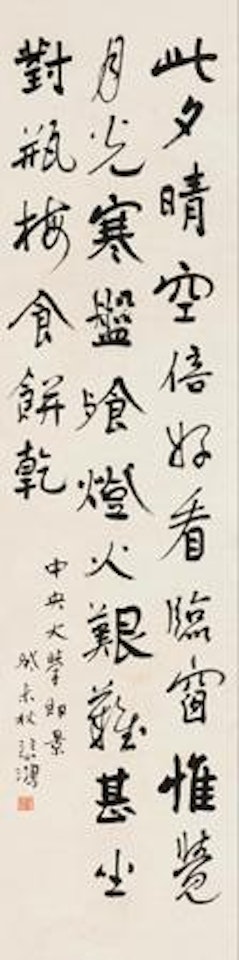 此夕晴空倍好看臨窗惟覺
月光寒盤飧燈火艱難甚坐
對瓶梅食餅乾
中央大學即景
癸未秋悲鴻